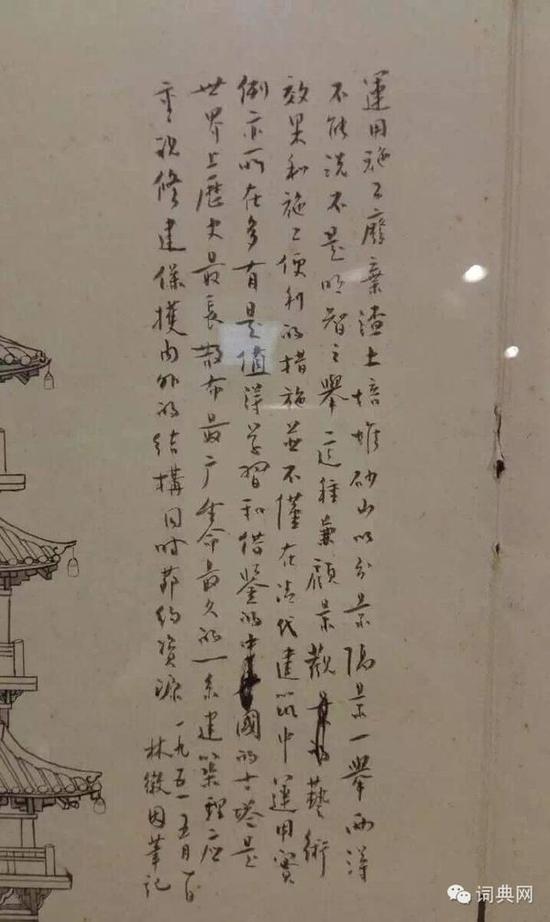 運用施工廢棄渣土培堆砂山以分景隔景一舉两得
不能说不是明智之舉這種兼顧景觀藝術
效果和施工便利的措施並不僅在清代建筑中運用實
例亦所在多有是值得学習和借鉴的中國的古塔是
世界上歷史最長散布最广生命最久的一系建築理应
重視修建保護内外的結構同時節約資源 一九五一五月
林徽因筆記
词典网